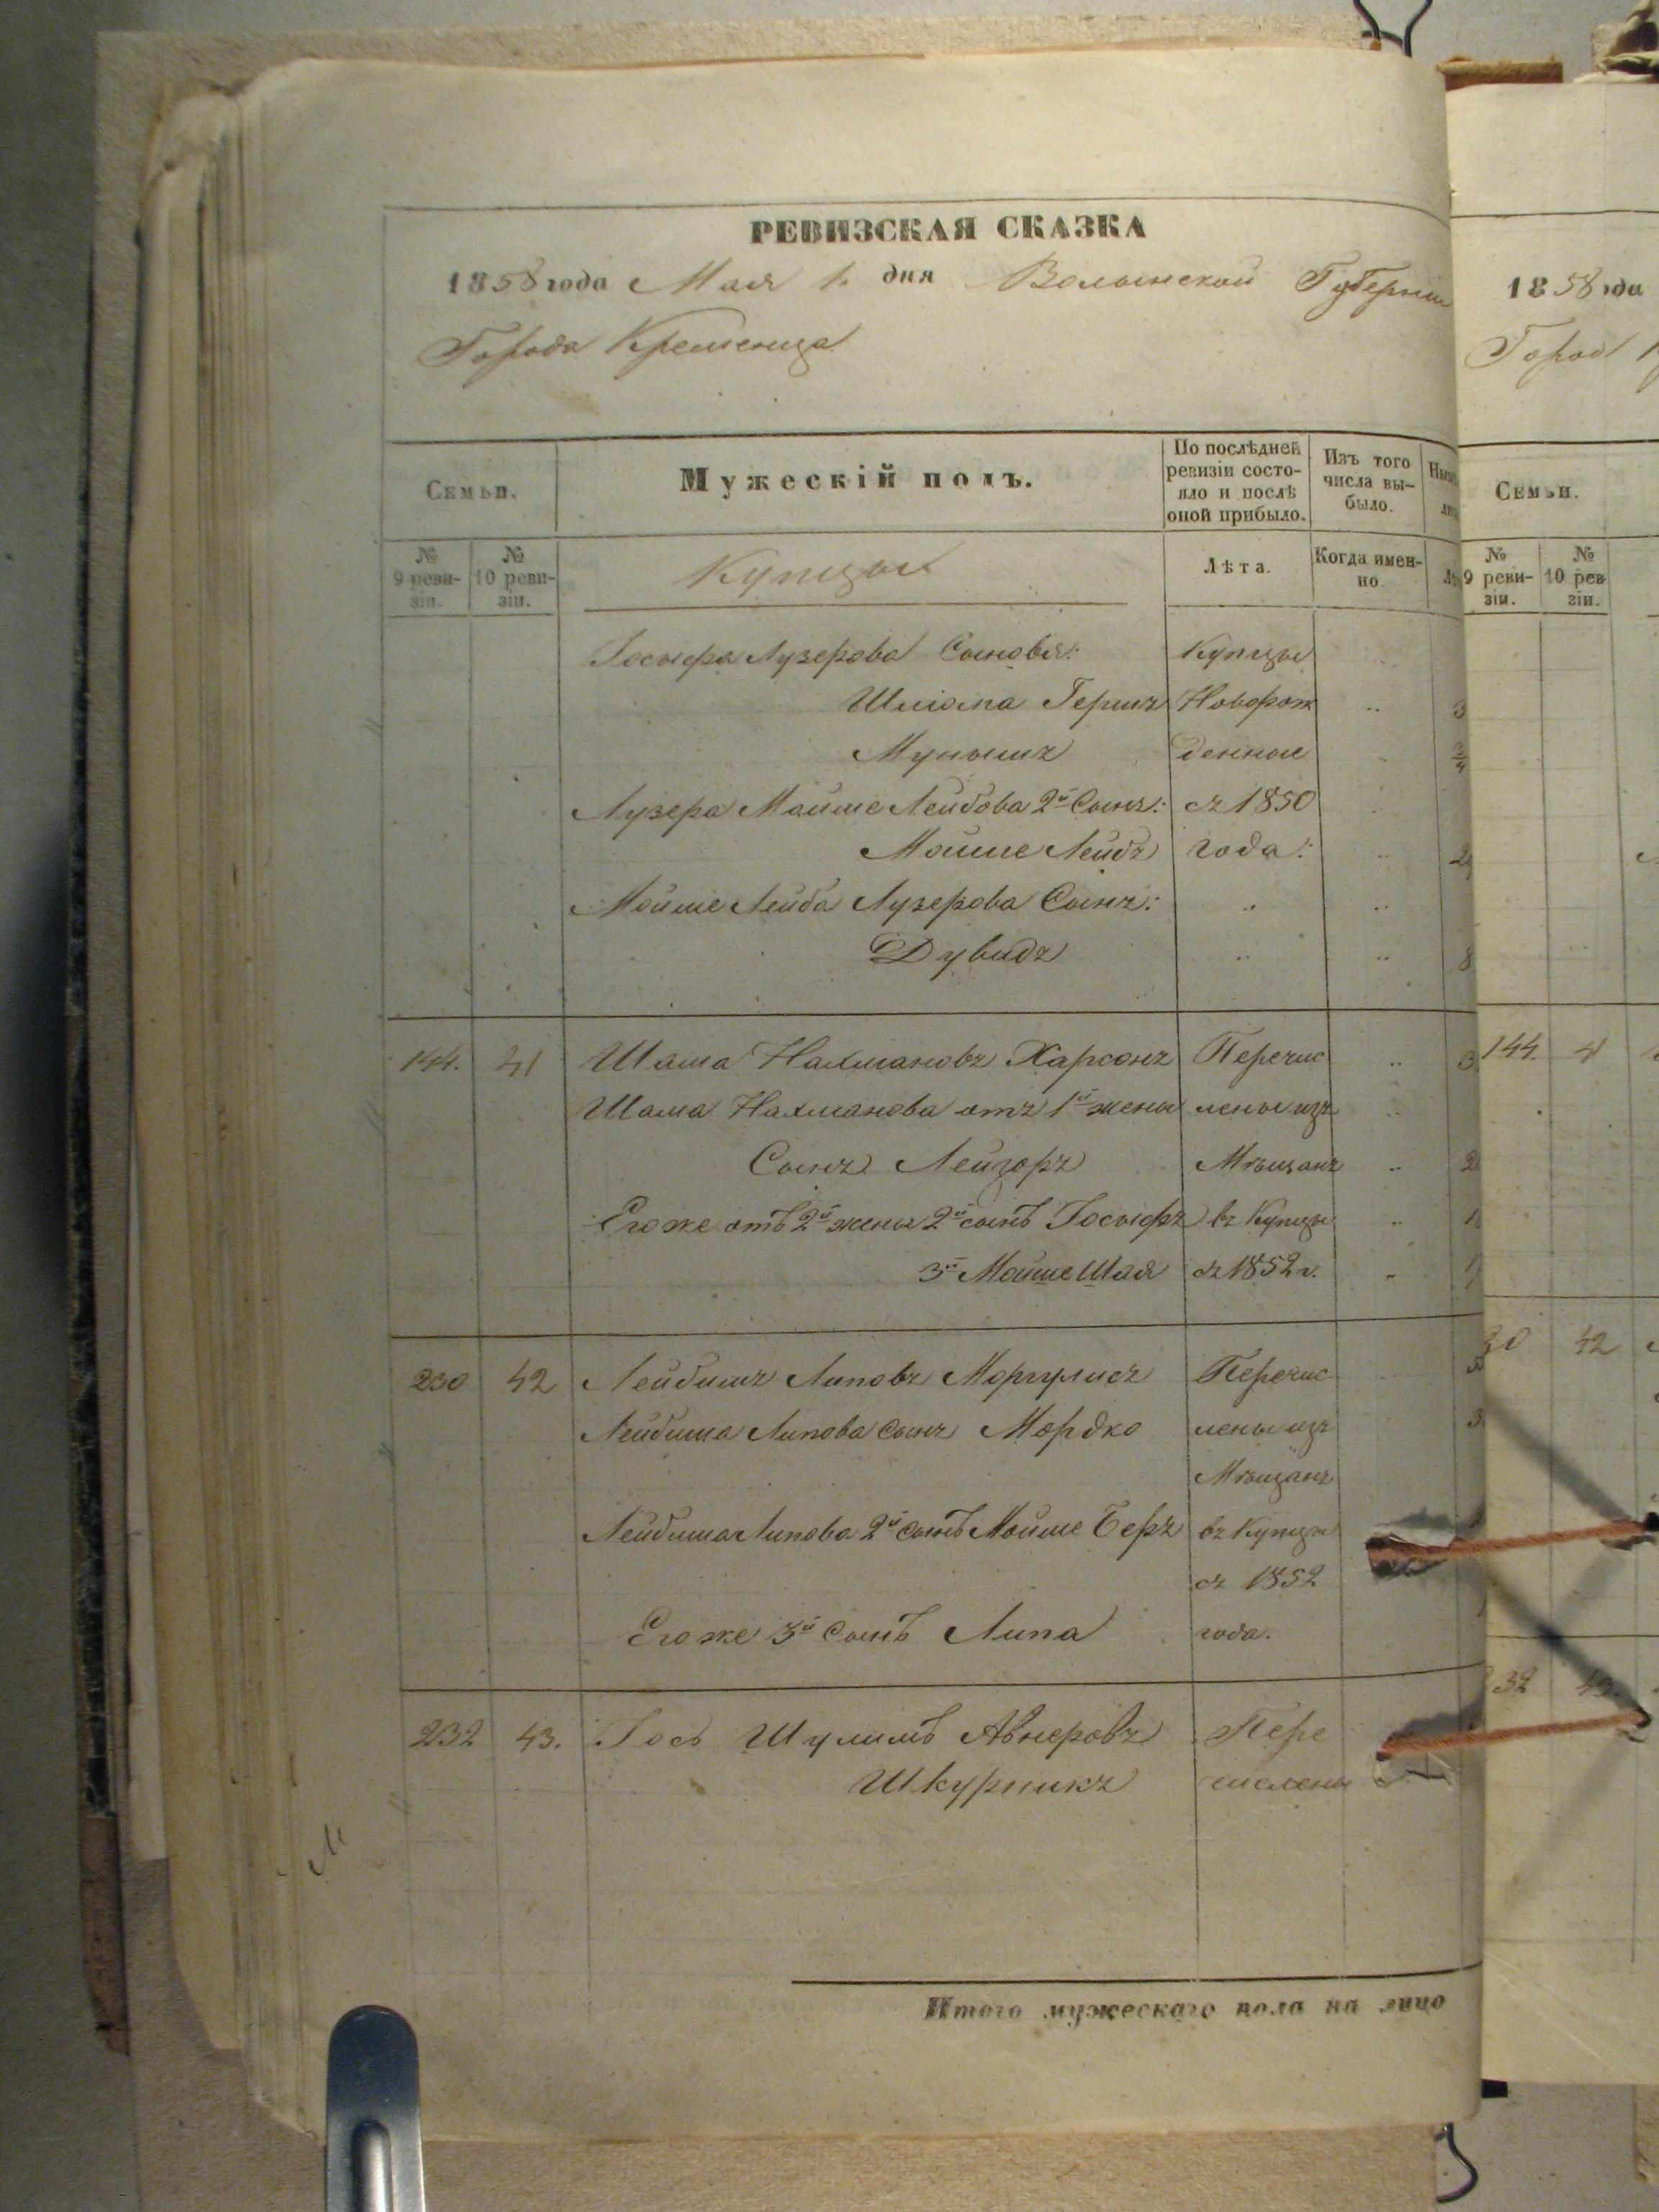 РЕВИЗСКАЯ СКАЗКА
1858 года Мая 1. дня Волынской Губернии
Города Кременца
Семьи.
Мужескій полъ.
По послѣдней ревизіи состояло и послѣ оной прибыло.
Изъ того числа выбыло.
№ 9 ревизіи.
№ 10 ревизіи.
Купцы
Лѣта.
Когда именно.
Іосыфа Лузерова Сыновья: Купцы
Шліома Гершъ Новорож 3
Мунышъ денные 3/4
Лузера Мойше Лейбова 2й Сынъ: съ 1850
Мойше Лейбъ года:
Мойше Лейба Лузерова Сынъ:
Дувидъ 8
144. 41 Шама Нахмановъ Харсонъ Перечис
Шама Нахманова отъ 1й жены лены изъ
Сынъ Лейзоръ Мѣщанъ
Его же отъ 2й жены 2й сынъ Іосыфъ въ Купцы
3й Мойше Шая съ 1852 г.
230 42 Лейбишъ Липовъ Моргулисъ Перечис
Лейбиша Липова сынъ Мордко лены изъ
Мѣщанъ
Лейбиша Липова 2й сынъ Мойше Беръ въ Купцы
съ 1852
Его же 3й сынъ Липа года.
232 43. Іось Шулимъ Авнеровъ Пере
Шкурникъ числены
Итого мужескаго пола на лицо
1858 года
Город
Семьи.
№ 9 ревизіи.
№ 10 ревизіи.
144. 41
30 42
32 43.